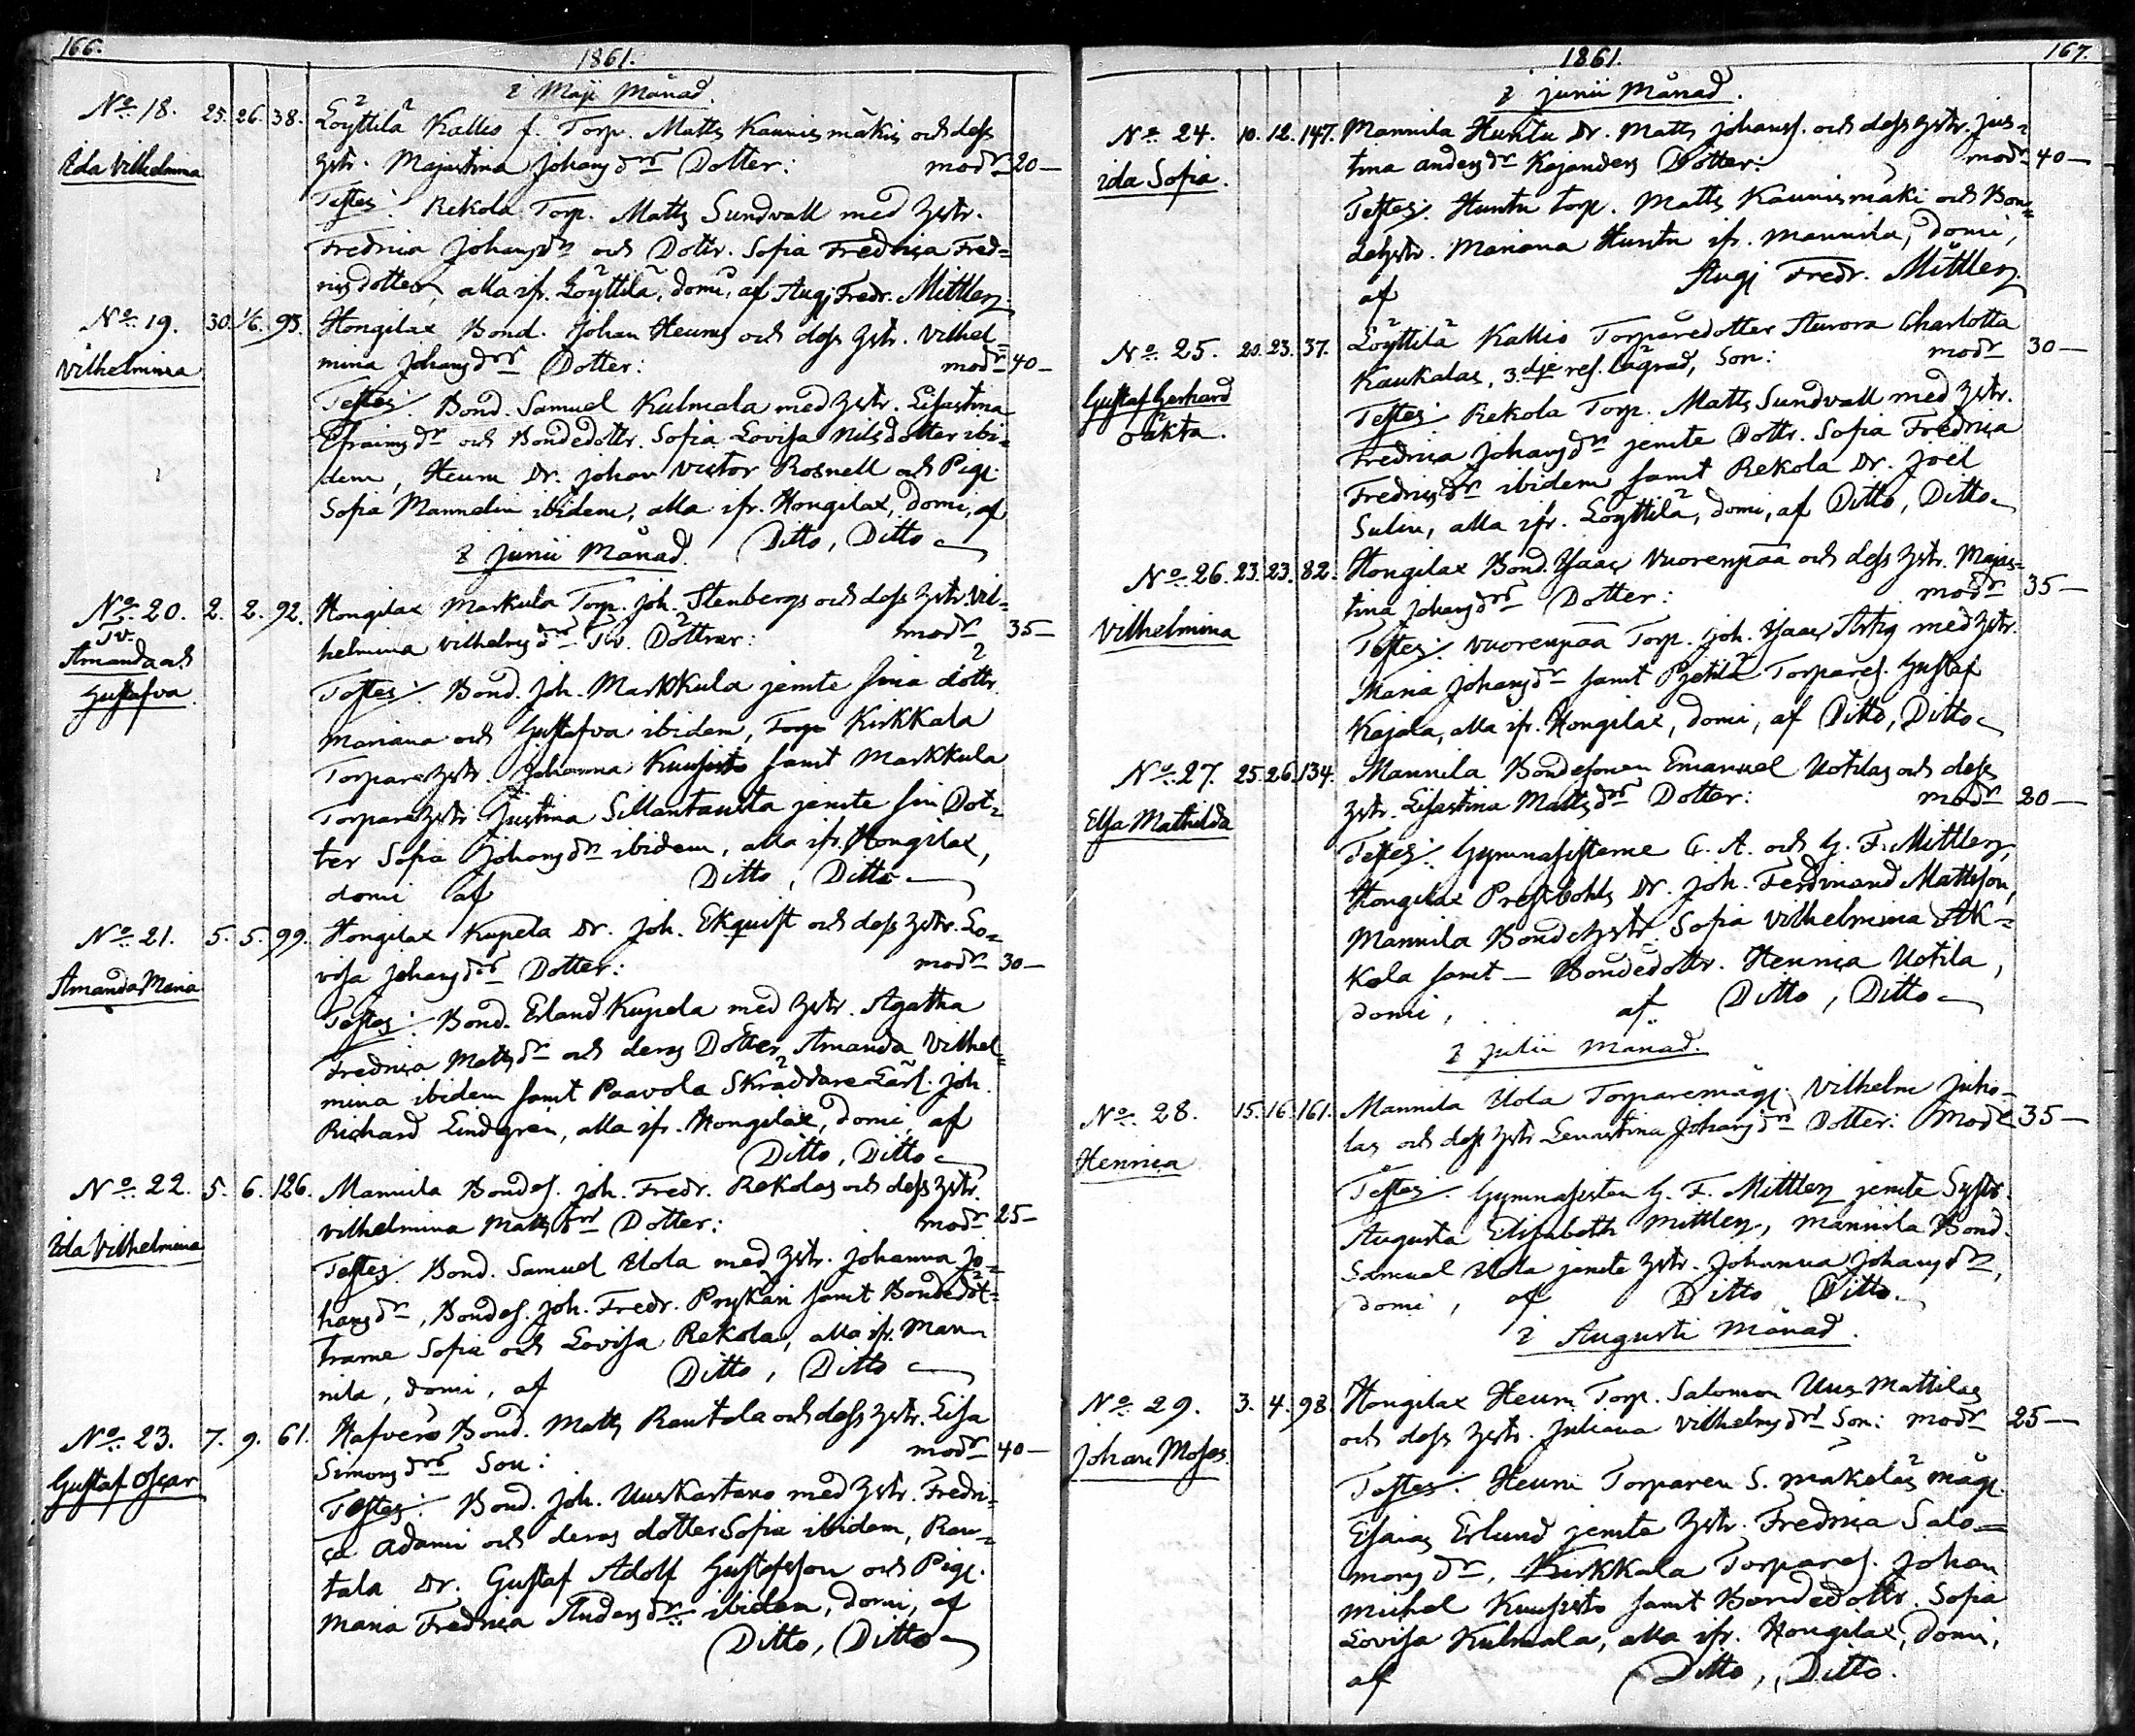 166.
1861.
i Maji Månad.
No. 18. 25. 26. 38. Löyttilä Kallio f. Torp. Matts Kaunismäkis och dess
Ida Vilhelmina
hstr. Majastina Johansdrs Dotter: modr 20 —
Testes: Rekola Torp. Matts Sundvall med hstr.
Fredrica Johansdr och Dottr. Sofia Fredrica Fred=
ricsdotter, alla ifr. Löyttilä, domi, af Augj Fredr. Mittler.
No. 19. 30. 1/6. 93. Hongilax Bond. Johan Heurus och dess hstr. Vilhel=
Vilhelmina
mina Johansdrs Dotter: modr 40 —
Testes: Bond. Samuel Kulmala med hstr. Lisastina
Efraimsdr och Bondedottr. Sofia Lovisa Nilsdotter ibi=
dem, Heuru Dr. Johan Victor Rosnell och Pig.
Sofia Mannelin ibidem, alla ifr. Hongilax, domi, af
Ditto, Ditto
i Junii Månad.
No. 20. 2. 2. 92. Hongilax Markula Torp. Joh. Stenbergs och dess hstr. Vil=
Tv.
Amanda och
Gustafva
helmina Vilhelmsdrs Tv. Döttrar: modr 35 —
Testes: Bond. Joh. Markkula jemte sina döttr.
Mariana och Gustafva ibidem, Torp Kirkkala
Torparehstr. Johanna Kuusisto samt Markkula
Torparehstr. Justina Sillantausta jemte sin Dot=
ter Sofia Johansdr ibidem, alla ifr. Hongilax,
domi af Ditto, Ditto
No. 21. 5. 5. 99. Hongilax Kupela Dr. Joh. Ekquist och dess hstr. Lo=
Amanda Maria
visa Johansdrs Dotter: modr 30 —
Testes: Bond. Erland Kupela med hstr. Agatha
Fredrica Mattsdr och deras Dotter Amanda Vilhel=
mina ibidem samt Paavola Skräddare Lärl. Joh.
Richard Lindgren, alla ifr. Hongilax, domi, af
Ditto, Ditto
No. 22. 5. 6. 126. Mannila Bondes. Joh. Fredr. Rekolas och dess hstr.
Ida Vilhelmina
Vilhelmina Mattsdrs Dotter: modr 25 —
Testes: Bond. Samuel Uola med hstr. Johanna Jo=
hansdr, Bondes. Joh. Fredr. Prykäri samt Bondedöt=
trarne Sofia och Lovisa Rekola, alla ifr. Man=
nila, domi, af Ditto, Ditto
No. 23. 7. 9. 61. Hafverö Bond. Matts Rautala och dess hstr. Lisa
Gustaf Oscar
Simonsdrs Son: modr 40 —
Testes: Bond. Joh. Uuskartano med hstr. Fredri=
ca Adami och deras dotter Sofia ibidem, Rau=
tala Dr. Gustaf Adolf Gustafsson och Pig.
Maria Fredrica Andersdr ibidem, domi, af
Ditto, Ditto
167.
1861.
i Junii Månad.
No. 24. 10. 12. 147. Mannila Huntu Dr. Matts Johanss. och dess hstr. Jus=
Ida Sofia.
tina Andersdr Kajanders Dotter: modr 40 —
Testes: Huntu torp. Matts Kaunismäki och Bon=
dehstr. Mariana Huntu ifr. Mannila, domi,
af Augj Fredr. Mittler.
No. 25. 20. 23. 37. Löyttilä Kallio Torparedotter Aurora Charlotta
Gustaf Gerhard
oäkta.
Kaukalas, 3.dje res. lägrad, Son: modr 30 —
Testes: Rekola Torp. Matts Sundvall med hstr.
Fredrica Johansdr jemte Dottr. Sofia Fredrica
Fredricsdr ibidem samt Rekola Dr. Joël
Sulin, alla ifr. Löyttilä, domi, af Ditto, Ditto
No. 26. 23. 23. 82. Hongilax Bond. Isaac Vuorenpää och dess hstr. Majas=
Vilhelmina
tina Johansdrs Dotter: modr 35 —
Testes: Vuorenpää Torp. Joh. Isaac Artig med hstr.
Maria Johansdr samt Pjetilä Torpares. Gustaf
Kajala, alla ifr. Hongilax, domi, af Ditto, Ditto
No. 27. 25. 26. 134. Mannila Bondesonen Emanuel Uotilas och dess
Elsa Mathilda
hstr. Lisastina Mattsdrs Dotter: modr 20 —
Testes: Gymnasisterne C. A. och G. F. Mittler,
Hongilax Prestbohls Dr. Joh. Ferdinand Mattsson,
Mannila Bondehstr. Sofia Vilhelmina Ak=
kola samt — Bondedottr. Henrica Uotila,
domi, af Ditto, Ditto
i Julii Månad.
No. 28. 15. 16. 161. Mannila Uola Torparemåg. Vilhelm Juho=
Henrica
las och dess hstr. Lenastina Johansdrs Dotter: Modr 35 —
Testes: Gymnasisten G. F. Mittler jemte Systr.
Augusta Elisabeth Mittler, Mannila Bond.
Samuel Uola jemte hstr. Johanna Johansdr,
domi, af Ditto Ditto.
i Augusti Månad.
No. 29. 3. 4. 98. Hongilax Heuru Torp. Salomon Uus Mattilas
Johan Moses
och dess hstr. Juliana Vilhelmsdrs Son: modr 25 —
Testes: Heuru Torparen S. Mäkeläs måg.
Esaias Erlund jemte hstr. Fredrica Salo=
monsdr, Kirkkala Torpares. Johan
Michel Kuusisto samt Bondedottr. Sofia
Lovisa Kulmala, alla ifr. Hongilax, domi,
af Ditto, Ditto.